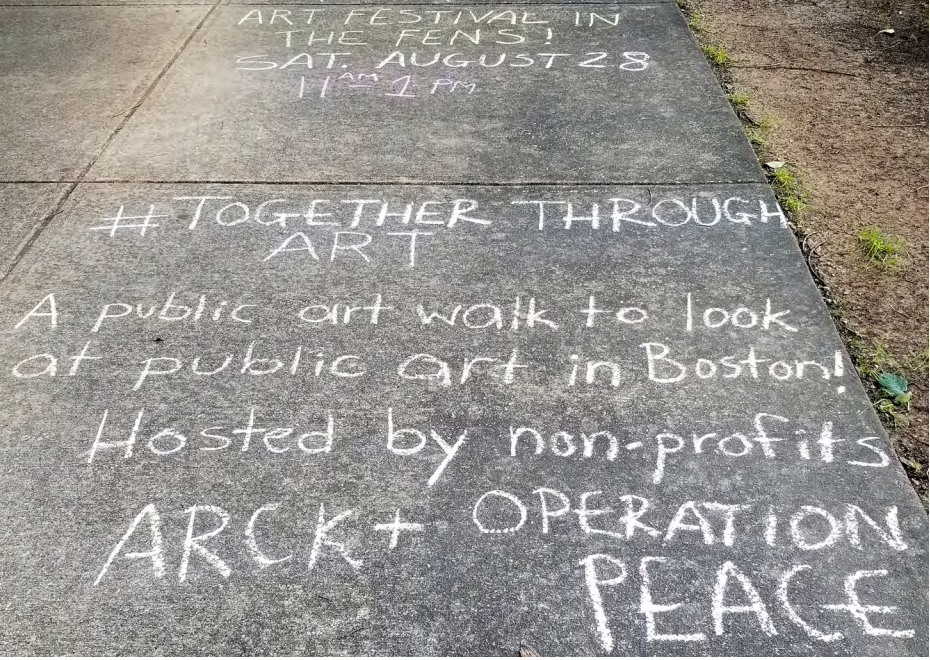 ART FESTIVAL IN
THE FENS!
SAT. AUGUST 28
11AM-1 PM
#TOGETHER THROUGH
ART
A public art walk to look
at public art in Boston!
Hosted by non-profits
ARCK+ OPERATION
PEACE